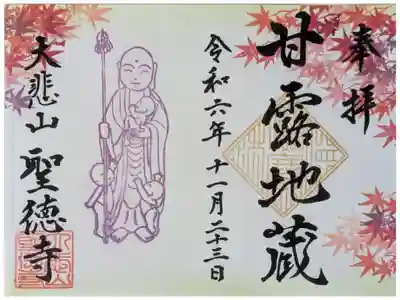 奉拝
甘露地蔵
令和六年十一月二十三日
大悲山 聖徳寺